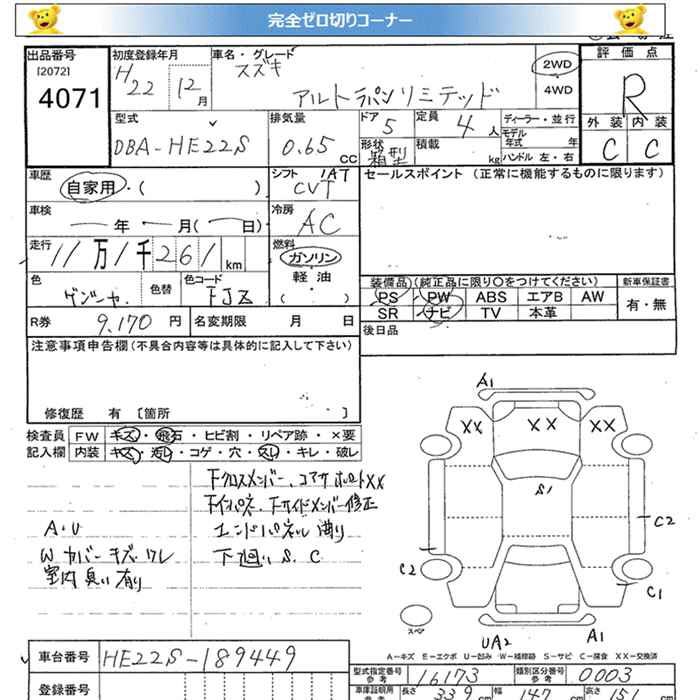 完全ゼロ切りコーナー
出品番号
[2072]
4071
初度登録年月
H22 12月
車名・グレード
スズキ
アルトラパンリミテッド
2WD
4WD
評価点
R
外装 内装
C C
型式
DBA-HE22S
排気量
0.65 CC
ドア 5
形状 箱型
定員 4 人
積載 kg
ディーラー・並行
モデル年式 年
ハンドル 左・右
車歴
自家用・( )
シフト 1AT
CVT
セールスポイント (正常に機能するものに限ります)
車検 年 月( 日)
冷房
AC
走行 11万1千261km
燃料
ガソリン
軽油
( )
色
色替
色コード
装備品)(純正品に限り○をつけてください)
新車保証書
PS PW ABS エアB AW
SR ナビ TV 本革
有・無
R券 9,170 円
名変期限 月 日
後日品
注意事項申告欄(不具合内容等は具体的に記入して下さい)
修復歴 有 [箇所 ]
検査員記入欄
FW キズ・飛石・ヒビ割・リペア跡・×要
内装 キズ・汚レ・コゲ・穴・スレ・キレ・破レ
A・U
W カバー キズ・ワレ
室内 臭い有り
FクロスメンバーXX
Fインパネ、Fサイドメンバー修正
エンドパネル 曲り
下廻り S、C
A1
XX XX XX
S1
C2
C2
C1
スペア
UA2 A1
A-キズ E-エクボ U-凹み W-補修跡 S-サビ C-腐食 XX-交換済
車台番号 HE22S-189449
登録番号
型式指定番号 16173
類別区分番号 0003
車庫証明用
参考 長さ 339 cm 幅 147 cm 高さ